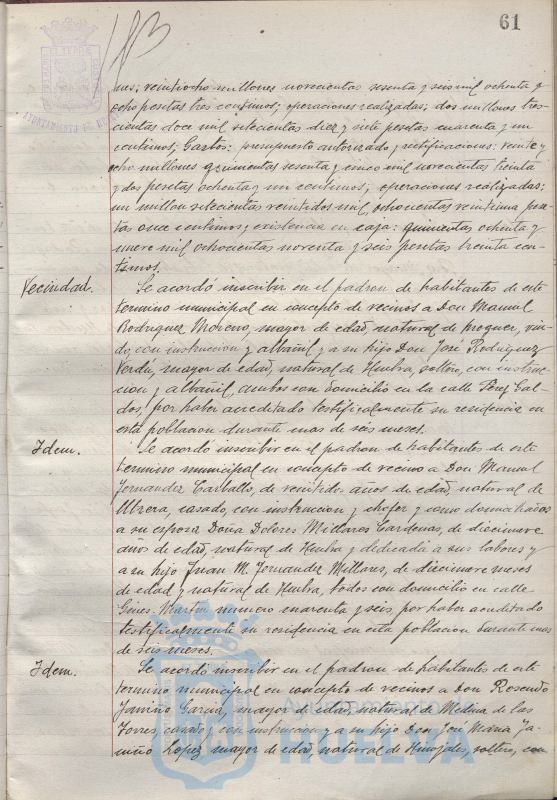 61
AYUNTAMIENTO DE HUELVA
nes; veintiocho millones novecientas sesenta y seis mil ochenta y
ocho pesetas tres centimos; operaciones realizadas; dos millones tres-
cientas doce mil setecientas diez y siete pesetas cuarenta y un
centimos; Gastos: presupuesto autorizado y rectificaciones: veinte y
ocho millones quinientas sesenta y cinco mil novecientas treinta
y dos pesetas ochenta y un centimos; operaciones realizadas:
un millon setecientas veintidos mil, ochocientas veintiuna pese-
tas once centimos y existencia en caja: quinientas ochenta y
nueve mil ochocientas noventa y seis pesetas treinta cen-
timos.
Vecindad. Se acordó inscribir en el padron de habitantes de este
termino municipal en concepto de vecinos a Don Manuel
Rodriguez Moreno, mayor de edad, natural de Moguer, viu-
do, con instruccion y albañil y a su hijo Don José Rodriguez
Verdú, mayor de edad, natural de Huelva, soltero, con instruc-
cion y albañil, ambos con domicilio en la calle Perez Gal-
dos, por haber acreditado testificalmente su residencia en
esta poblacion durante mas de seis meses.
Idem. Se acordó inscribir en el padron de habitantes de este
termino municipal en concepto de vecino a Don Manuel
Fernandez Carballo, de veintidos años de edad, natural de
Utrera, casado, con instruccion y chofer y como domiciliados
a su esposa Doña Dolores Millares Cardenas, de diecinueve
años de edad, natural de Huelva y dedicada a sus labores y
a su hijo Juan M. Fernandez Millares, de diecinueve meses
de edad y natural de Huelva, todos con domicilio en calle
Gines Martin numero cuarenta y seis, por haber acreditado
testificalmente su residencia en esta poblacion durante mas
de seis meses.
Idem. Se acordó inscribir en el padron de habitantes de este
termino municipal en concepto de vecinos a Don Rosendo
Garcia, mayor de edad, natural de Medina de las
Torres, casado y con instruccion y a su hijo Don José Maria
Lopez, mayor de edad, natural de Hinojales, soltero, con
Ayuntamiento de
HUELVA